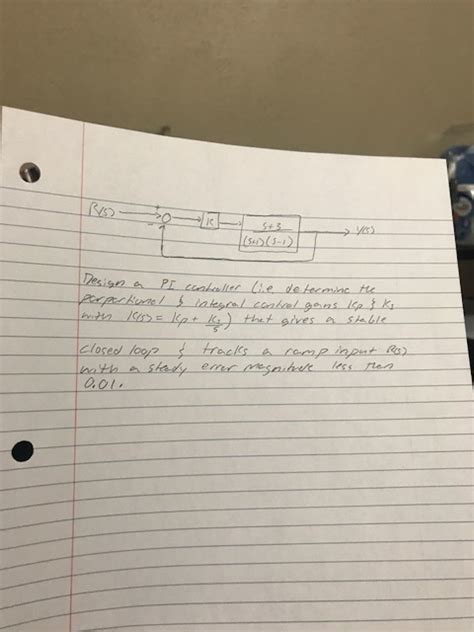 R(s) + - K s+3 Y(s)
(s+1)(s-1)
Design a PI controller (i.e determine the
porportional & integral control gains Kp & KI
with K(s) = Kp + KI/s) that gives a stable
closed loop & tracks a ramp input R(s)
with a steady error magnitude less then
0.01.